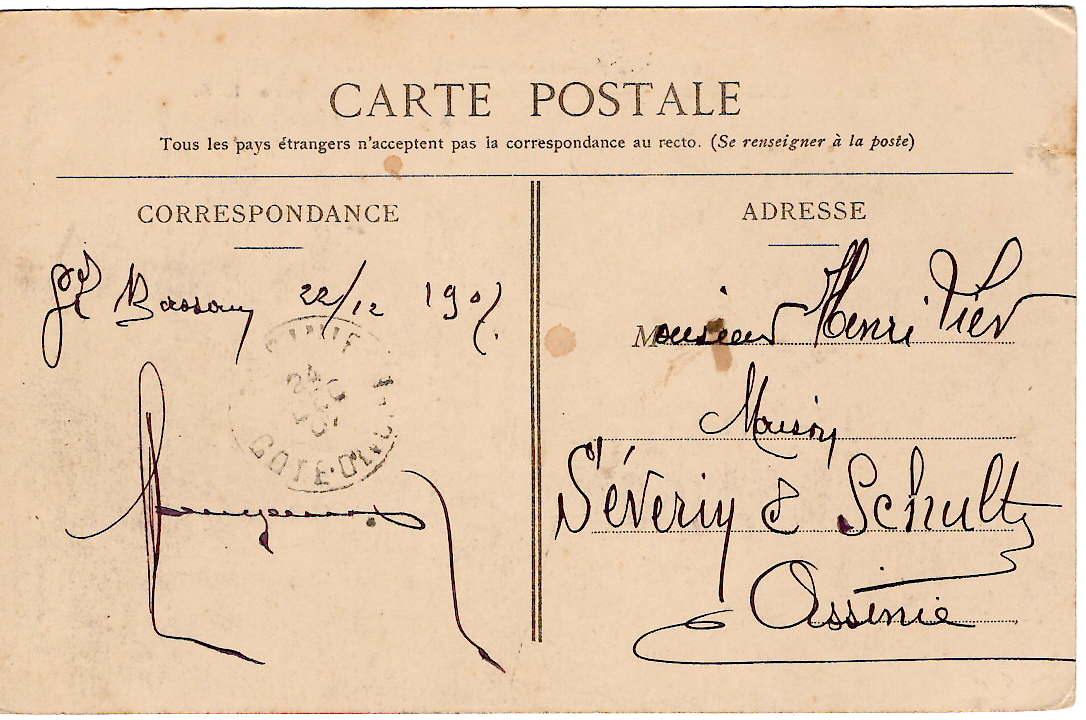 CARTE POSTALE
Tous les pays étrangers n'acceptent pas la correspondance au recto. (Se renseigner à la poste)
CORRESPONDANCE
Gd Bassam 22/12 1907.
COTE D'IVOIRE
ADRESSE
Monsieur Henri
Maison
Séverin & Schultz
Assinie